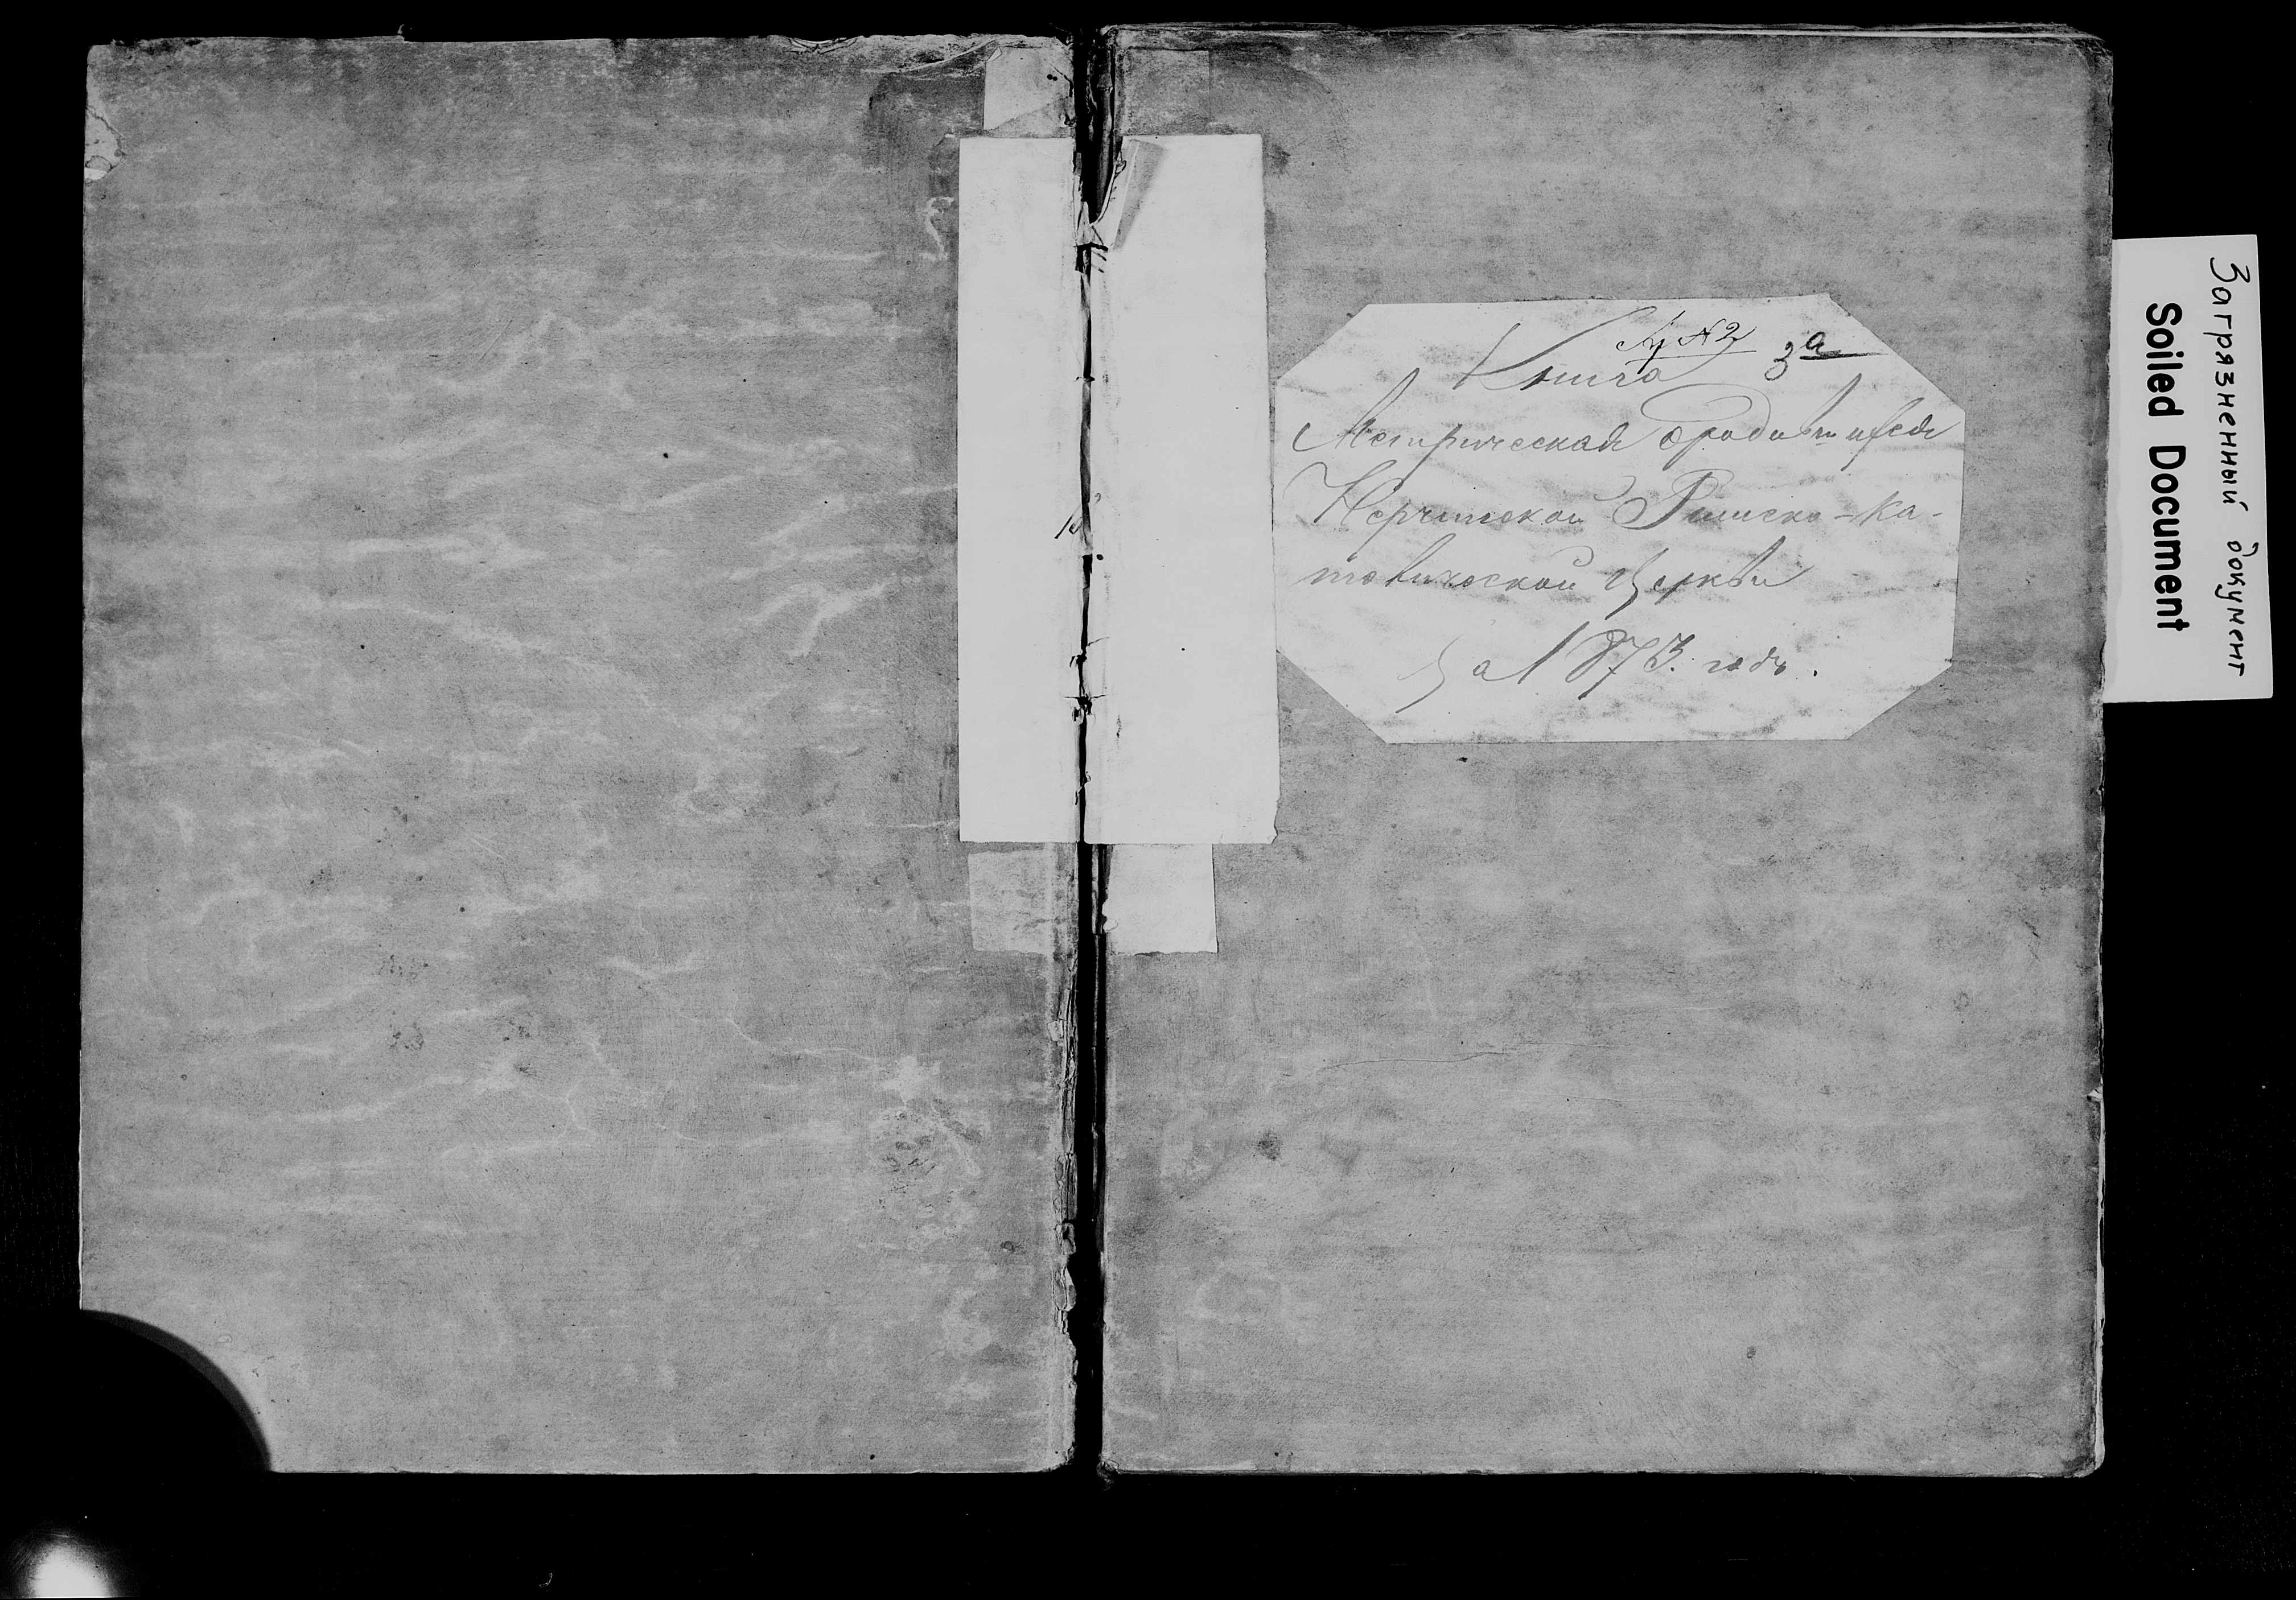 № 2 3а
Книга
Метрическая о родившихся
Нерчинской Римско-ка-
толической Церкви
За 1873. годъ.
Загрязненный документ
Soiled Document